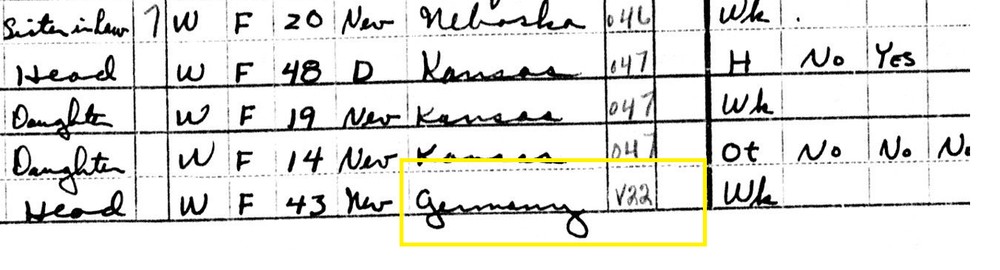 Sister in Law 7 W F 20 Nev Nebraska 046 Wk
Head W F 48 D Kansas 047 H No Yes
Daughter W F 19 Nev Kansas 047 Wk
Daughter W F 14 Nev Kansas 047 Ot No No No
Head W F 43 Nev Germany V22 Wk